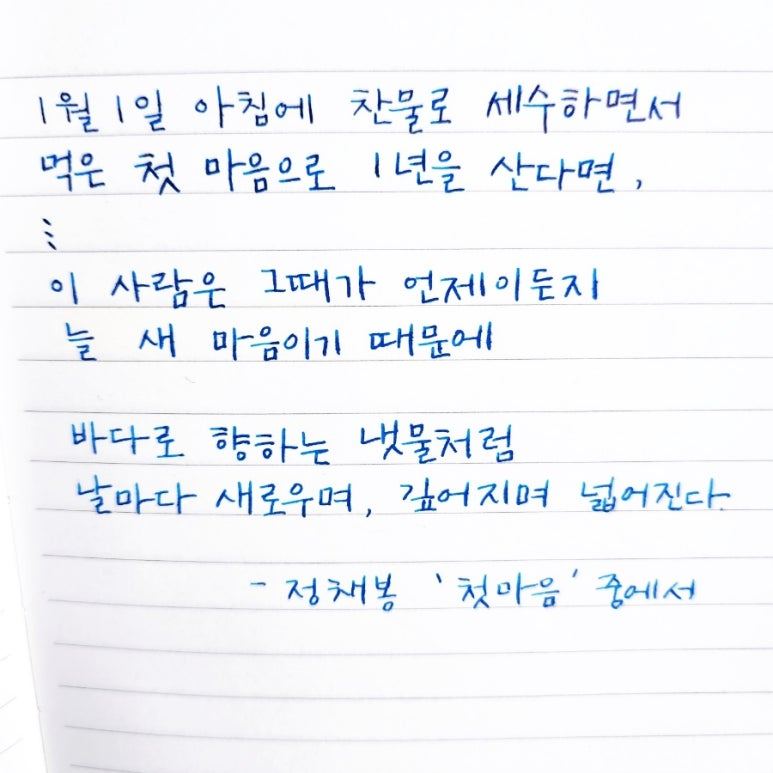 1월 1일 아침에 찬물로 세수하면서
먹은 첫 마음으로 1년을 산다면,
⋮
이 사람은 그때가 언제이든지
늘 새 마음이기 때문에
바다로 향하는 냇물처럼
날마다 새로우며, 깊어지며 넓어진다.
- 정채봉 '첫마음' 중에서